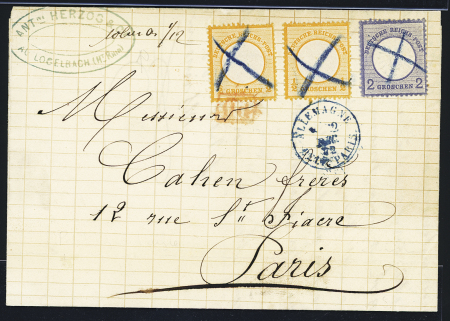 ANT. HERZOG
AU LOGELBACH (Ht. Rhin)
DEUTSCHE REICHS-POST
GROSCHEN
DEUTSCHE REICHS-POST
GROSCHEN
DEUTSCHE REICHS-POST
2 GROSCHEN 2
ALLEMAGNE
PARIS
Messieurs
Cahen frères
12 rue St Fiacre
Paris